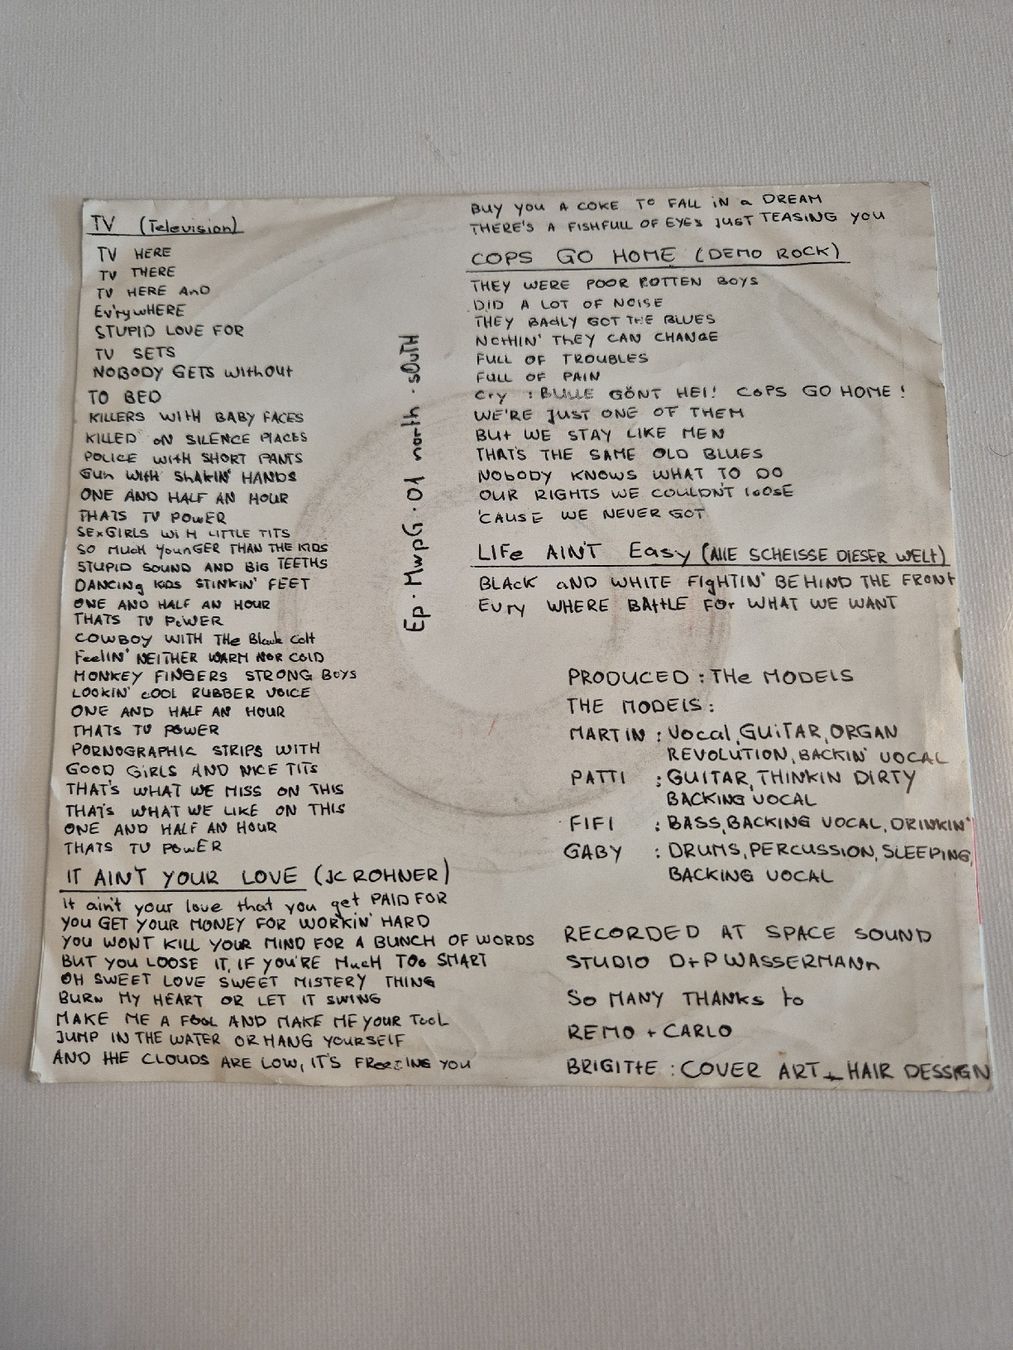 TV (Television)
TV HERE
TV THERE
TV HERE AnD
Ev'rywHERE
STUPID LOVE FOR
TV SETS
NOBODY GETS without
TO BED
KILLERS WITH BABY FACES
KILLED oN SILENCE PlACES
POLICE WITH SHORT PANTS
Gun WITH ShAKIN' HANDS
ONE AND HALF AN HOUR
THATS TV PoWER
SExGIRLS WITH LITTLE TITS
SO MUcH YounGER THAN THE KIDS
STUPID SOUND AND BIG TEETHS
DANCINg KIDS STINKIN' FEET
ONE AND HALF AN HOUR
THATS TV PoWER
COWBOY WITH THe Black Colt
FeelIN' NEITHER WARM NOR COlD
MONKEY FINGERS STRONG BoYS
LOOKIN' cOOL RUBBER VOICE
ONE AND HALF AN HOUR
THATS TV POWER
PORNOGRAPHIC STRIPS WITH
GOOD GIRLS AND NICE TITS
THAT'S WHAT WE MISS ON THIS
THAT'S WHAT WE LIKE ON THIS
ONE AND HALF AN HOUR
THATS TV PoWER
IT AIN'T YOUR LOVE (JC ROHNER)
It ain't your love that you get PAID FOR
YOU GET YOUR MONEY FOR WORKIN' HARD
YOU WONT KILL YOUR MIND FOR A BUNCH OF WORDS
BUT YOU LOOSE IT, IF YOU'RE MucH TOo SMART
OH SWEET LOVE SWEET MISTERY THING
BURN MY HEART OR LET IT SWING
MAKE ME A FOOL AND MAKE ME YOUR TooL
JUMP IN THE WATER OR HANG YOURSELF
AND THE CLOUDS ARE LOW, IT'S FREEZING YOU
Ep · MwpG · 01 north · sOuTH
BUY YOU A COKE To FALL iN a DREAM
THERE'S A FISHFULL OF EYES JUST TEASING YOU
COPS GO HOME (DEMO ROCK)
THEY WERE POOR ROTTEN BOYS
DID A LOT OF NOISE
THEY BADLY GOT THE BLUES
NOTHIN' THEY CAN CHANGE
FULL OF TROUBLES
FULL OF PAIN
Cry : BULLE GÖNT HEI! COPS GO HOME!
WE'RE JUST ONE OF THEM
BUt WE STAY LIKE MEN
THAT'S THE SAME OLD BLUES
NOBODY KNOWS WHAT TO DO
OUR RIGHTS WE COULDN'T loOSE
'CAUSE WE NEVER GOT
LIFe AIN'T Easy (AllE SCHEISSE DIESER WElt)
BLACK aND WHITE FIgHTIN' BEHIND THE FRONT
Evry WHERE BAttLE FOr WHAT WE WANT
PRODUCED : THe MODElS
THE MODElS :
MARTIN : Vocal, GUITAR, ORGAN
REVOLUTION, BACKIN' VOCAL
PATTI : GUITAR, THINKIN DIRTY
BACKING VOCAL
FIFI : BASS, BACKING VOCAL, DRINKIN'
GABY : DRUMS, PERCUSSION, SLEEPING,
BACKING VOCAL
RECORDED AT SPACE SOUND
STUDIO D+P WASSERMANn
So MANY THANKs to
REMO + CARLO
BRIGITtE : COVER ART + HAIR DESSIGN